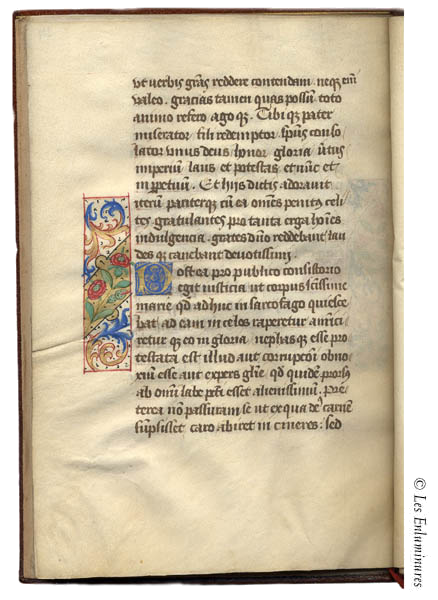 ut verbis gr̃as reddere contendam neq̷ em̃
valeo. gracias tamen quas possũ toto
animo refero ago q̷. Tibi q̷ pater
miserator fili redemptor sp̃us conso
lator vnus deus honor gloria v̾tus
imperium laus et potestas et nũc et
in p̱petuum. Et hijs dictis adoravit
iterũ panterq̷ cũ ea om̃es penitus celi
tes gratulantes pro tanta erga hoĩes
indulgencia. grates dño reddebant lau
des q̷ canebant devotissimi.
Postera pro publico consistorio
egit iusticia ut corpus sc̃issime
marie qd̃ adhuc in sarcofago quiesce
bat ad eam in celos raperetur amici
retur q̷ eo in gloria nephas q̷ esse pro
testata est illud aut corrupcõi obno
xiũ esse aut expers glĩe qd̃ quidẽ prorsꝫ
ab om̃i labe p̃cti esset alienissimũ. Pre
terea nõ passuram se ut ex qua deꝰ carnẽ
sũpsisset caro abiret in cineres. sed
© Les Enluminures